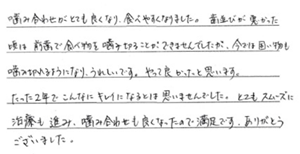 噛み合わせがとても良くなり、食べやすくなりました。歯並びが悪かった
頃は前歯で食べ物を噛みきることができませんでしたが、今では固い物も
噛みきれるようになり、うれしいです。やって良かったと思います。
たった2年でこんなにキレイになるとは思いませんでした。とてもスムーズに
治療も進み、噛み合わせも良くなったので満足です。ありがとう
ございました。